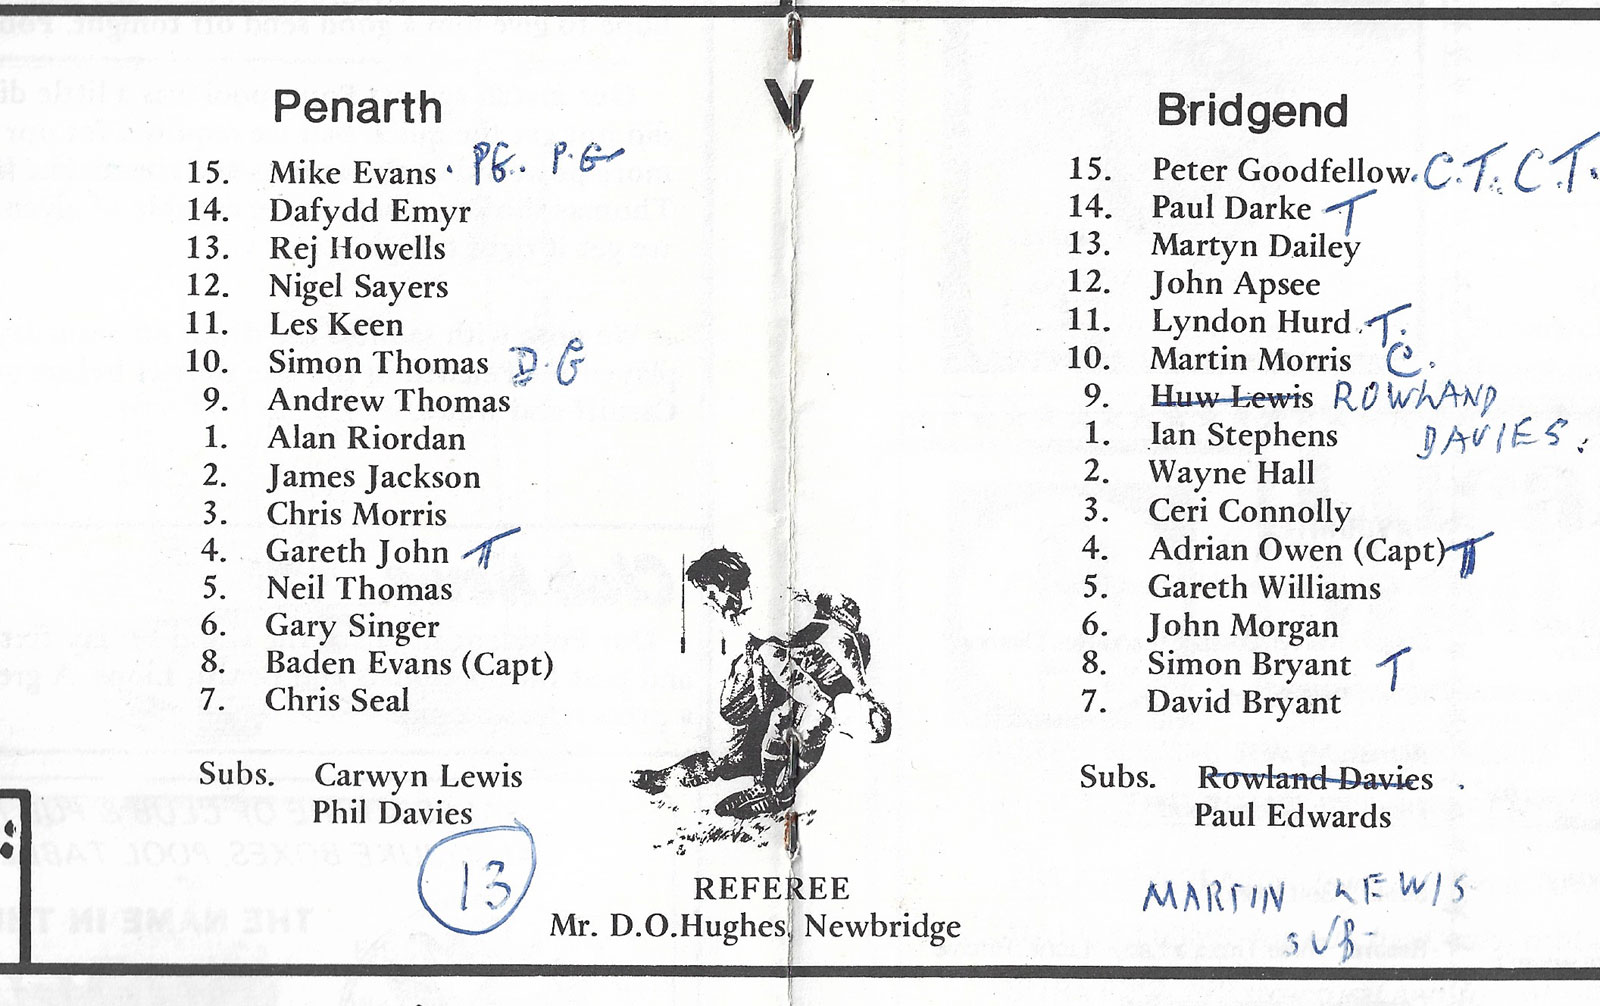 Penarth V Bridgend
15. Mike Evans . PG. P.G
14. Dafydd Emyr
13. Rej Howells
12. Nigel Sayers
11. Les Keen
10. Simon Thomas D.G
9. Andrew Thomas
1. Alan Riordan
2. James Jackson
3. Chris Morris
4. Gareth John T
5. Neil Thomas
6. Gary Singer
8. Baden Evans (Capt)
7. Chris Seal
Subs. Carwyn Lewis
Phil Davies
13
15. Peter Goodfellow. C.T. C.T.
14. Paul Darke T
13. Martyn Dailey
12. John Apsee
11. Lyndon Hurd T.
10. Martin Morris C.
9. Huw Lewis ROWLAND
DAVIES.
1. Ian Stephens
2. Wayne Hall
3. Ceri Connolly
4. Adrian Owen (Capt) T
5. Gareth Williams
6. John Morgan
8. Simon Bryant T
7. David Bryant
Subs. Rowland Davies
Paul Edwards
MARTIN LEWIS
SUB
REFEREE
Mr. D.O.Hughes, Newbridge